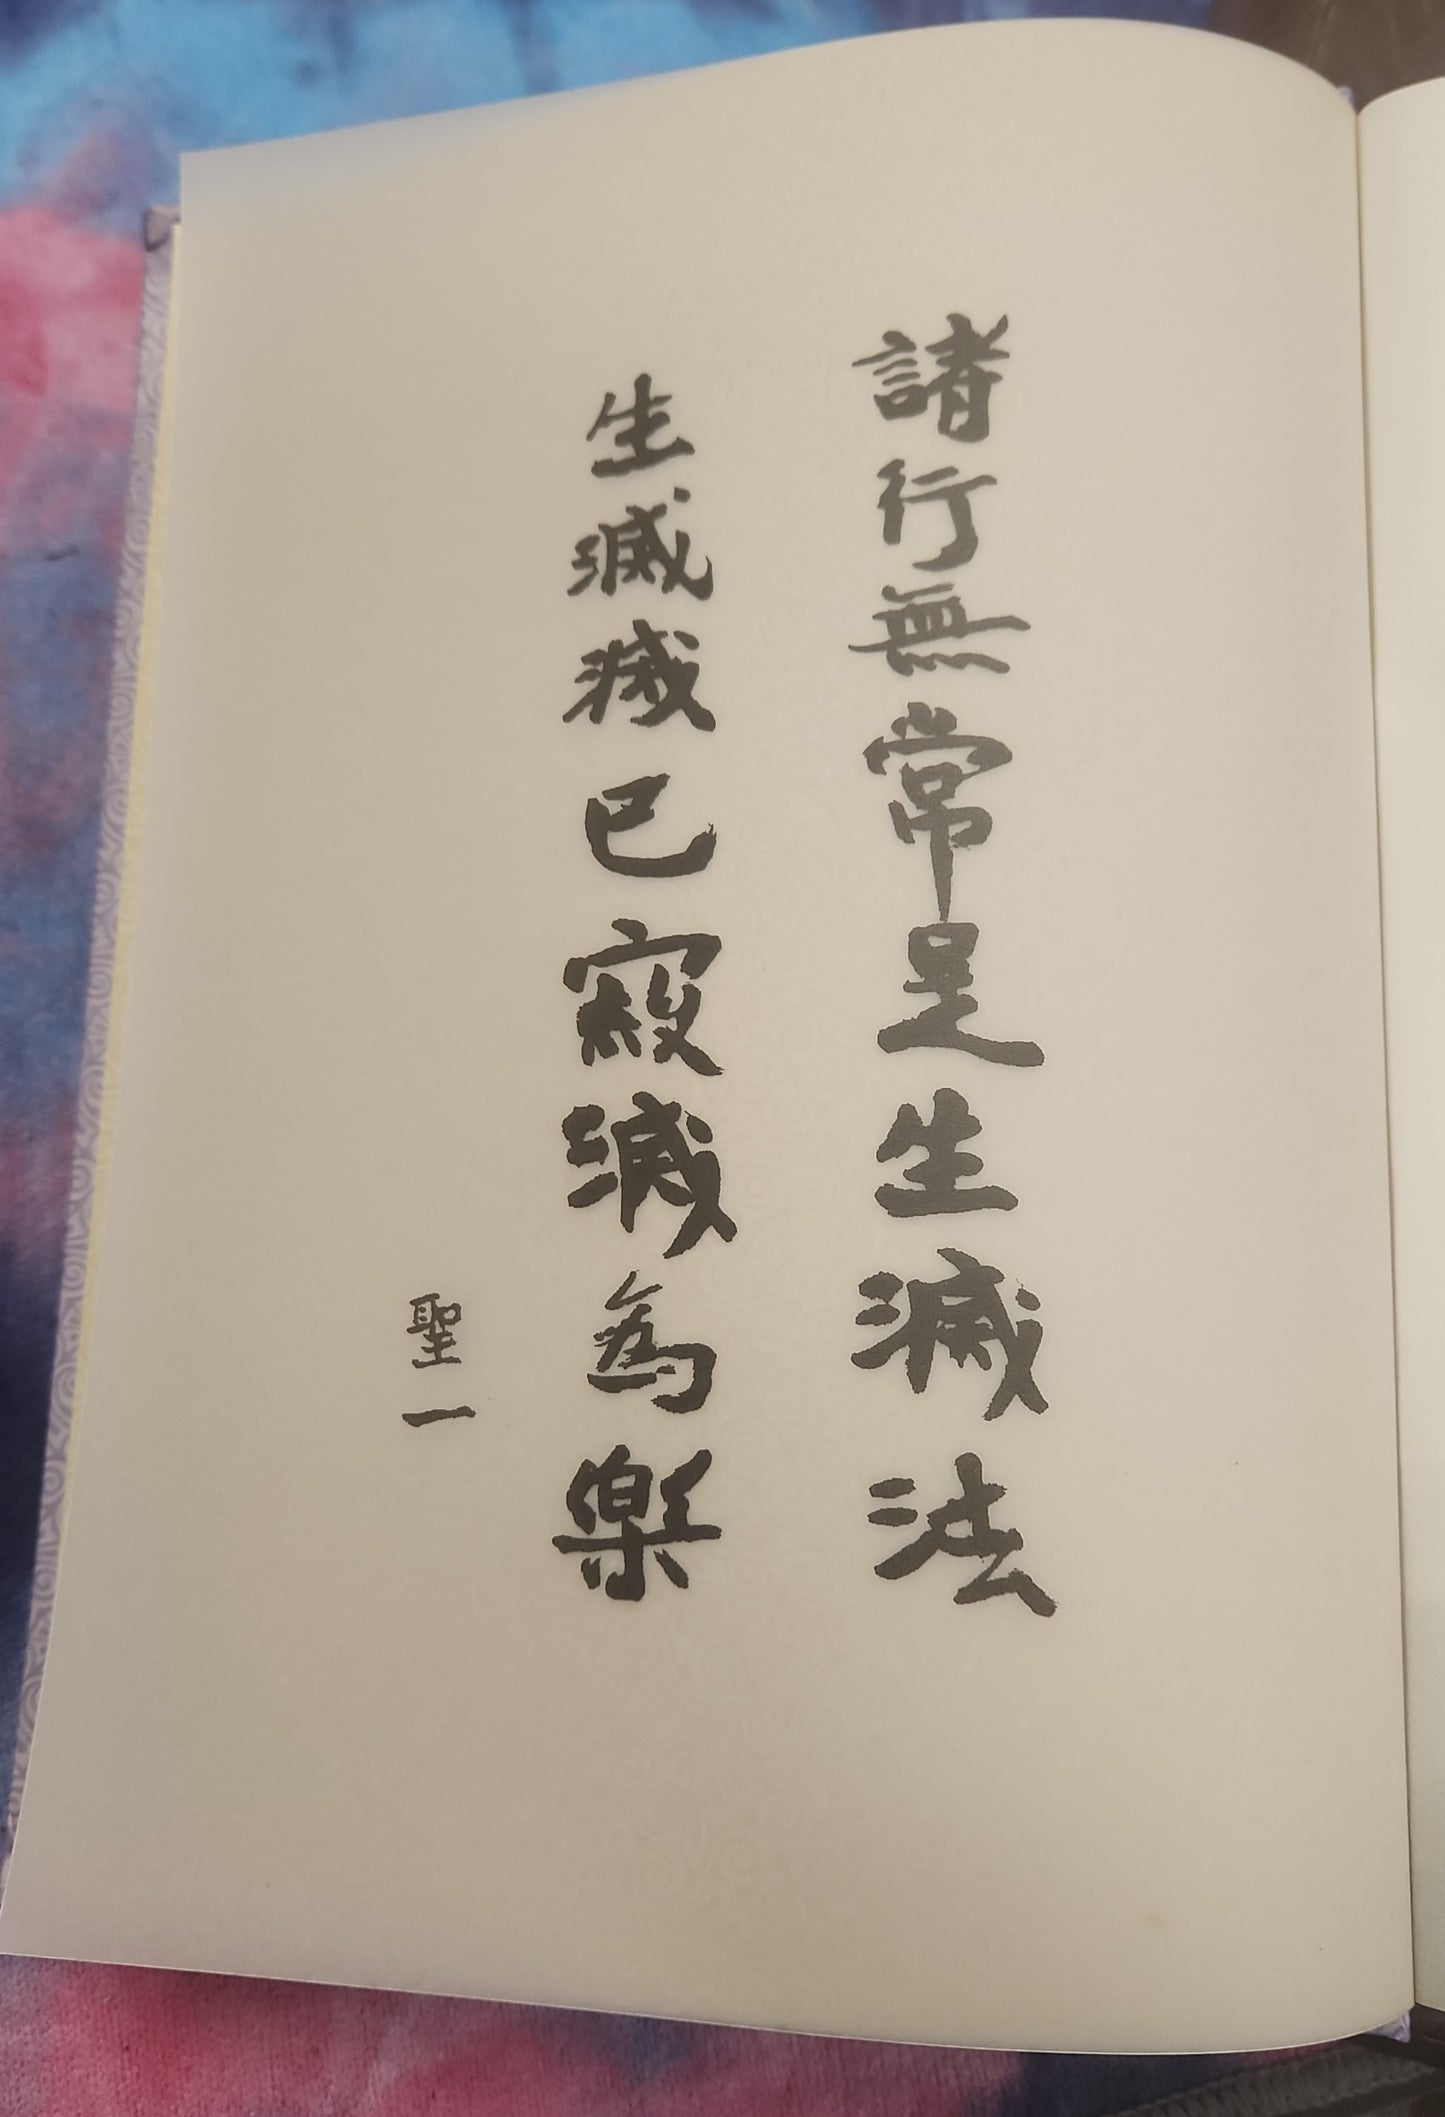 諸行無常是生滅法
生滅滅已寂滅為樂
聖一